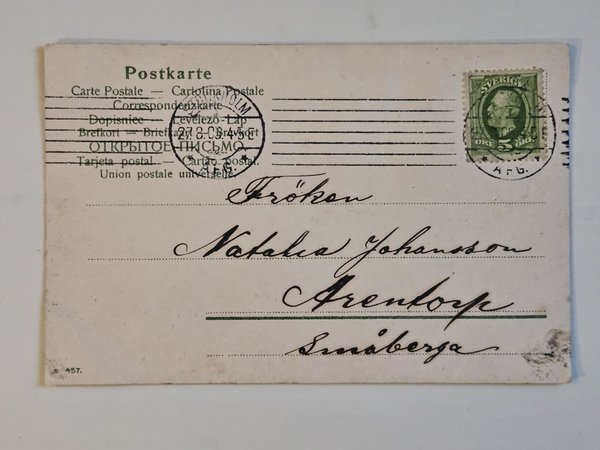 Postkarte
Carte Postale — Cartolina Postale
Correspondenzkarte
Dopisnice — Levelező-Lap
Brefkort — Briefkaart — Brevkort
ОТКРЫТОЕ ПИСЬМО
Tarjeta postal — Cartão postal.
Union postale universelle
STOCKHOLM
AFG.
SVERIGE
ÖRE 5 ÖRE
AFG.
Fröken
Natalia Johansson
Arentorp
Småberga
457.